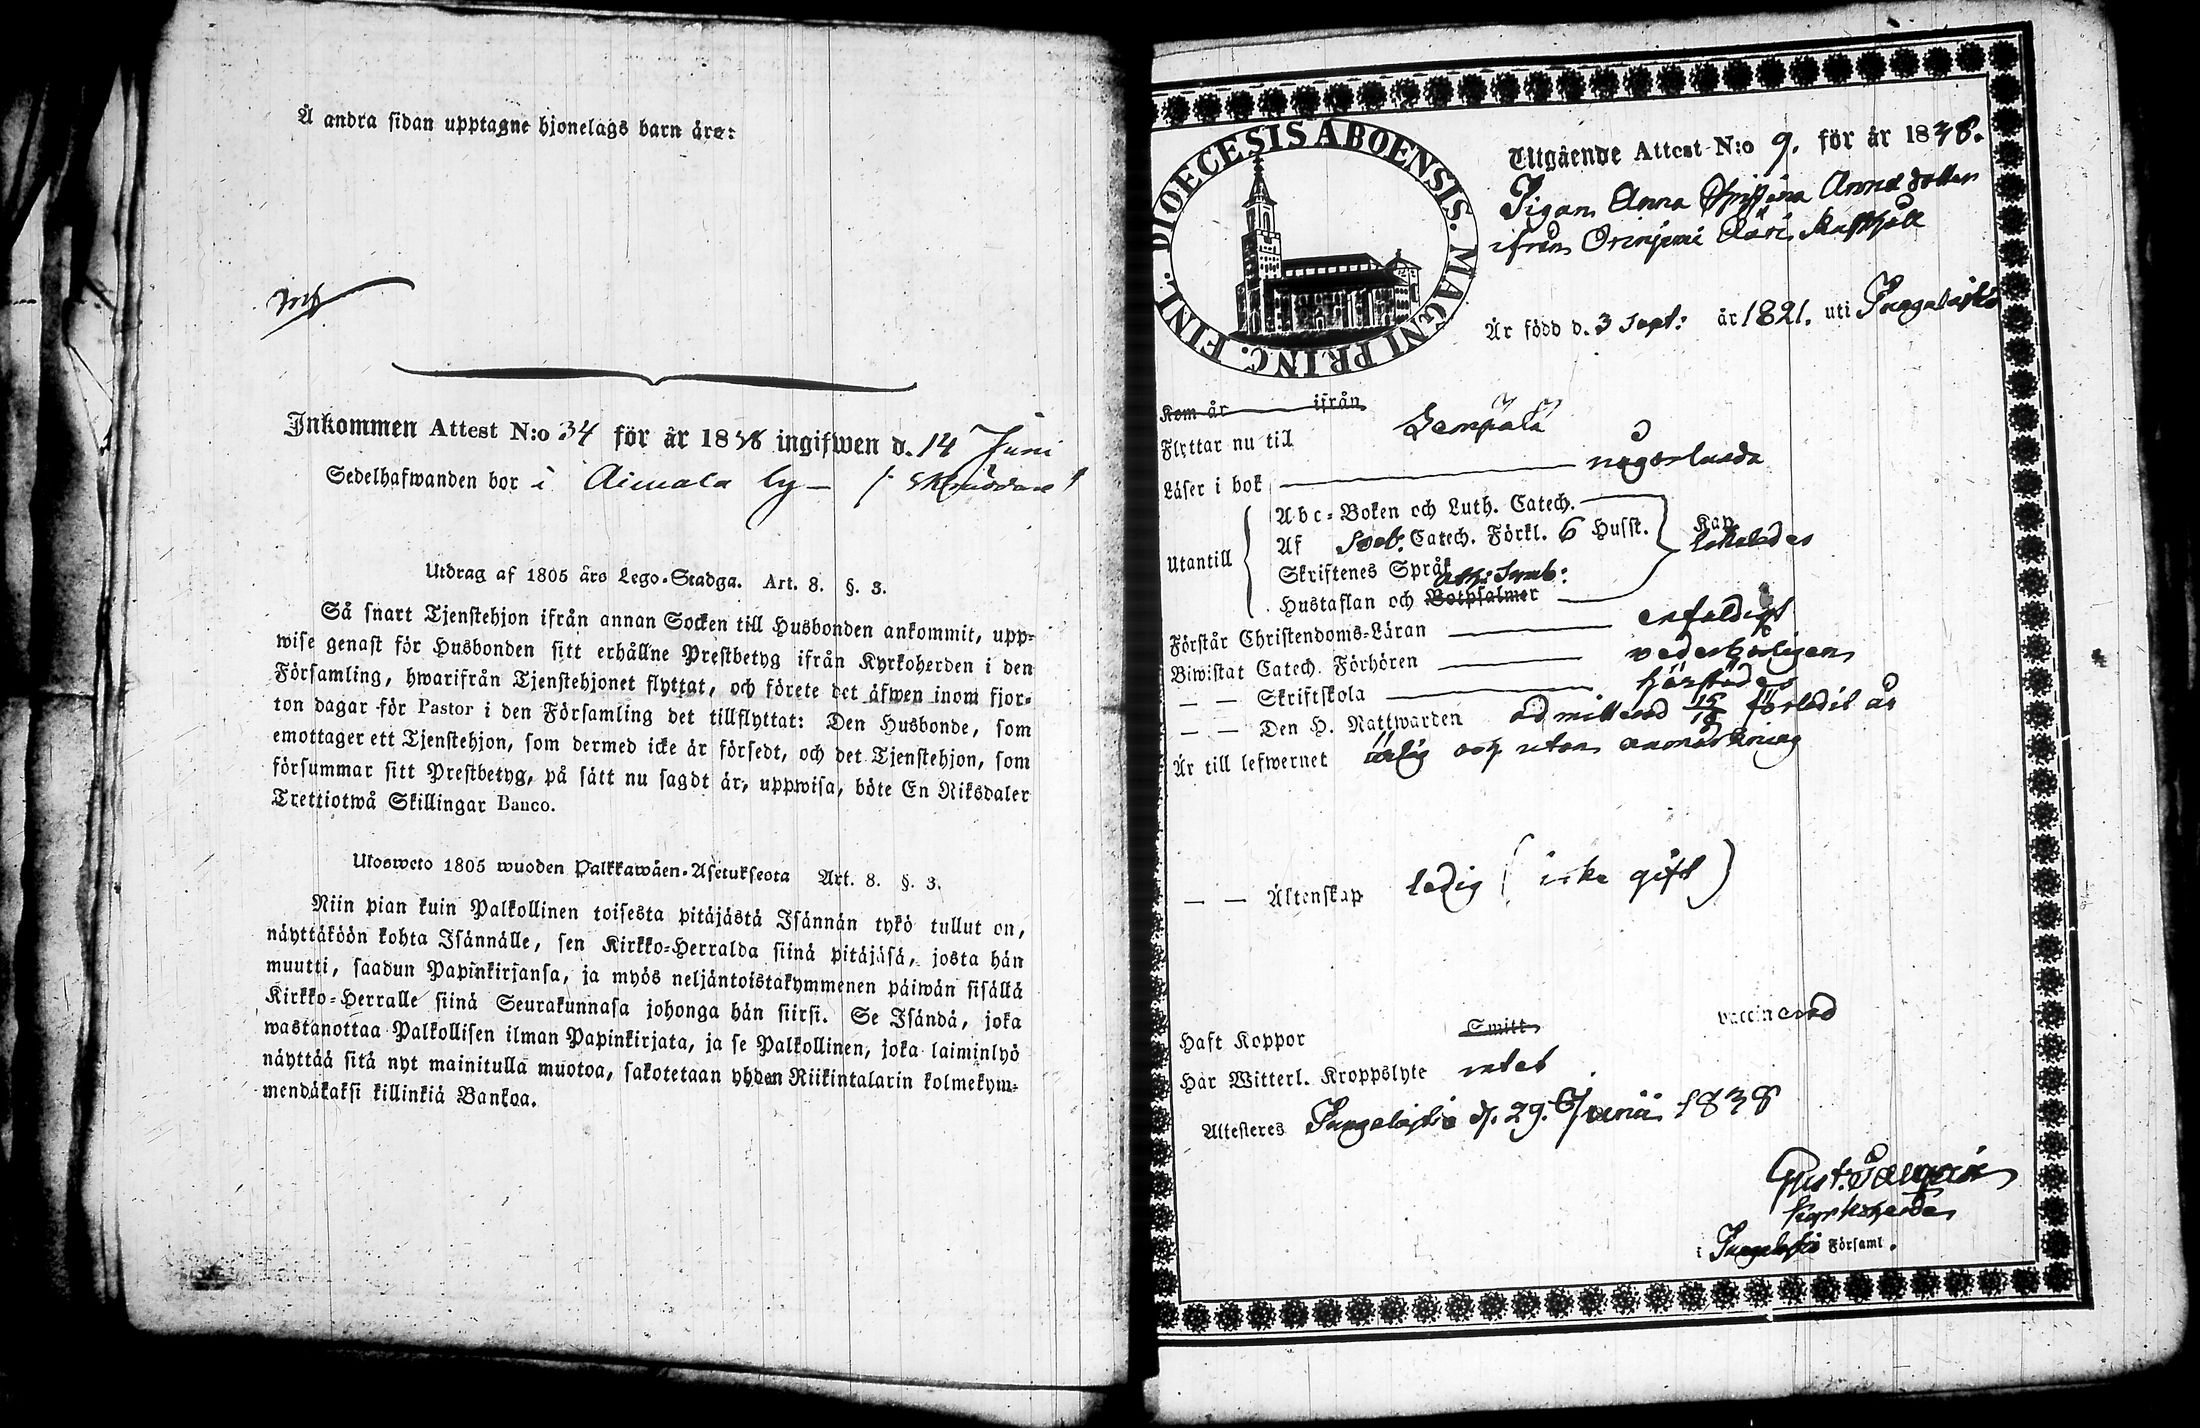 Å andra sidan upptagne hjonelags barn äro:
Inkommen Attest N:o 34 för år 1838 ingifwen d. 14 Juni
Sedelhafwanden bor i Aimala by
Utdrag af 1805 års Lego-Stadga. Art. 8. §. 3.
Så snart Tjenstehjon ifrån annan Socken till Husbonden ankommit, upp-
wise genast för Husbonden sitt erhållne Prestbetyg ifrån Kyrkoherden i den
Församling, hwarifrån Tjenstehjonet flyttat, och förete det äfwen inom fjor-
ton dagar för Pastor i den Församling det tillflyttat: Den Husbonde, som
emottager ett Tjenstehjon, som dermed icke är försedt, och det Tjenstehjon, som
försummar sitt Prestbetyg, på sätt nu sagdt är, uppwisa, böte En Riksdaler
Trettiotwå Skillingar Banco.
Ulosweto 1805 wuoden Palkkawäen-Asetuksesta Art. 8. §. 3.
Niin pian kuin Palkollinen toisesta pitäjästä Isännän tykö tullut on,
näyttäköön kohta Isännälle, sen Kirkko-Herralda siinä pitäjäsä, josta hän
muutti, saadun Papinkirjansa, ja myös neljäntoistakymmenen päiwän sisällä
Kirkko-Herralle siinä Seurakunnasa johonga hän siirsi. Se Isändä, joka
wastanottaa Palkollisen ilman Papinkirjata, ja se Palkollinen, joka laiminlyö
näyttää sitä nyt mainitulla muotoa, sakotetaan yhden Riikintalarin kolmekym-
mendäkaksi killinkiä Bankoa.
DIOECESIS ABOENSIS. MAGNI PRINC. FINL.
Utgående Attest N:o 9. för år 1838.
Pigan Anna Annæ dotter
ifrån Orinjemi
Är född d. 3 Sept: år 1821. uti Tungelastio
Kom år ifrån
Flyttar nu till Lempälä
Läser i bok någorlunda
Utantill
Abc-Boken och Luth. Catech.
Af Sveb. Catech. Förkl. 6 Husst.
Skriftenes Språk
Hustaflan och Botpsalmer
Förstår Christendoms-Läran enfaldigt
Biwistat Catech. Förhören vederbörligen
— — Skriftskola
— — Den H. Nattwarden admitterad 15/18 förledit år
Är till lefwernet ärlig och utan anmärkning
— — Äktenskap ledig (icke gift)
Haft Koppor Smitt vaccinerad
Har Witterl. Kroppslyte intet
Attesteres d. 29. Junii 1838
Gust.
Kyrkoherde
i Församl.